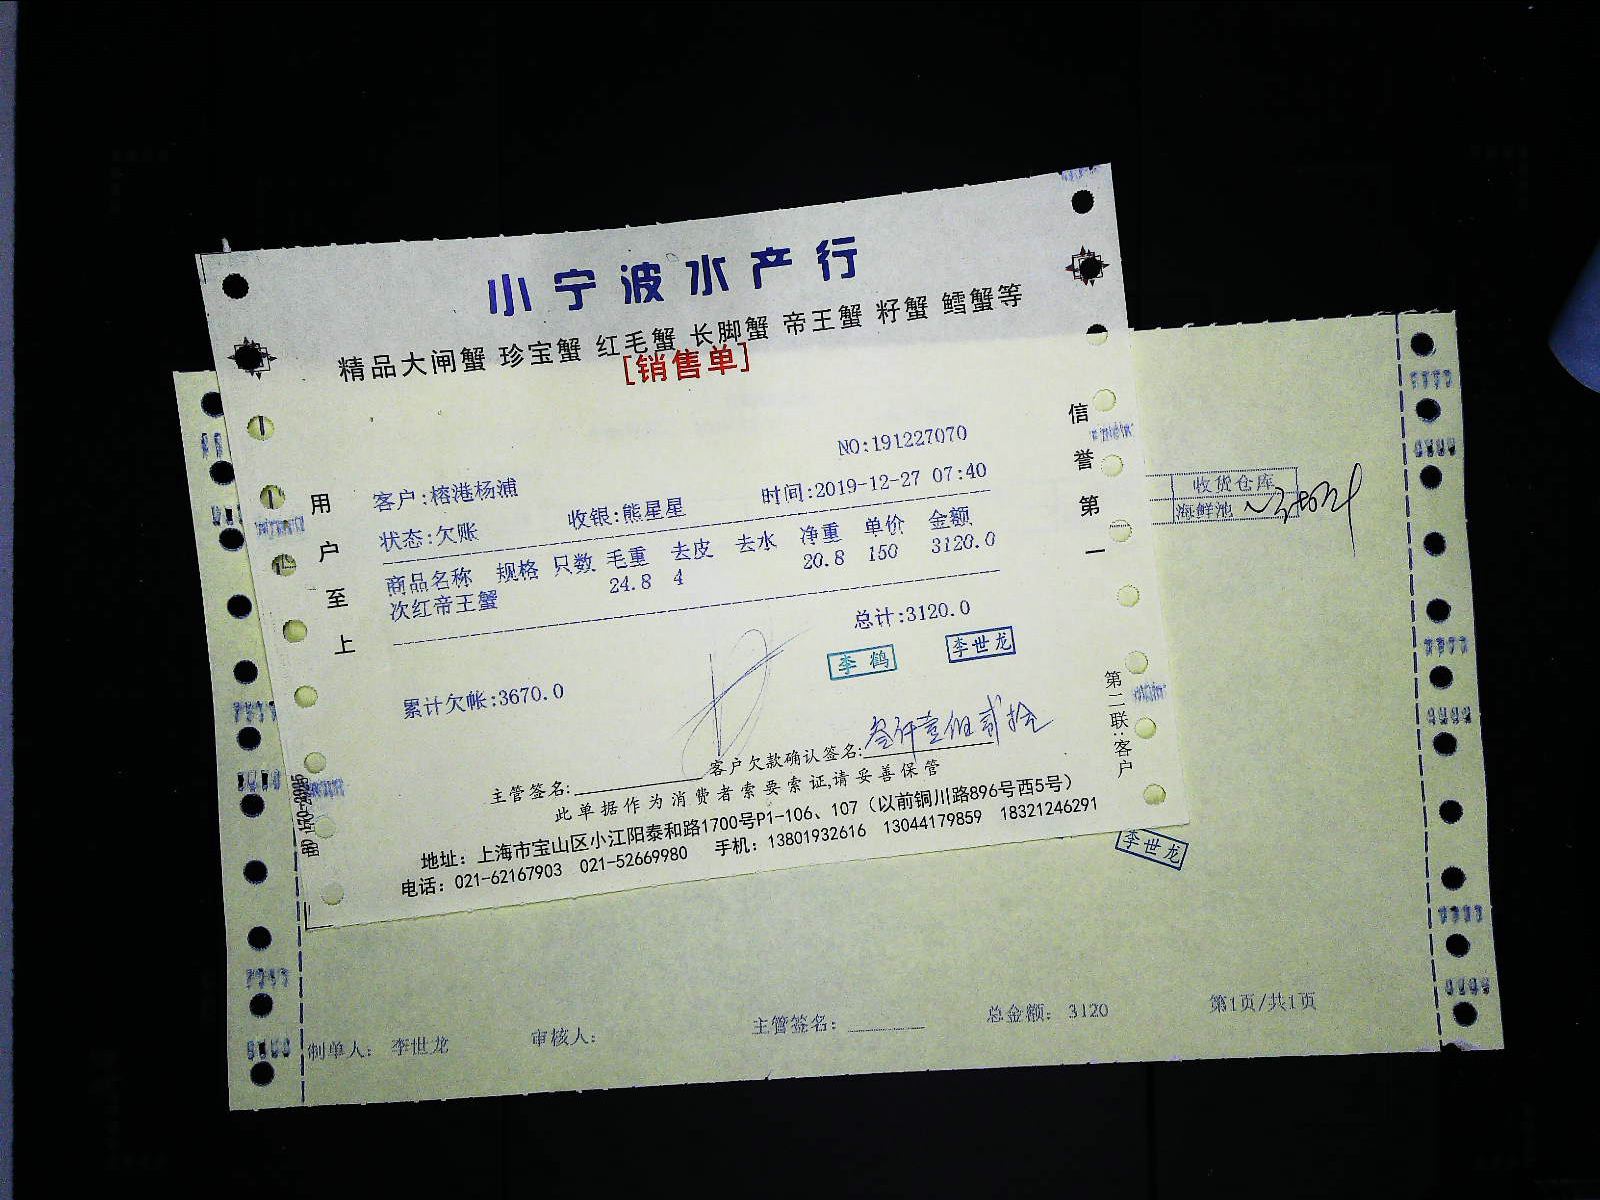 小宁波水产行
精品大闸蟹 珍宝蟹 红毛蟹 长脚蟹 帝王蟹 籽蟹 鳕蟹等
[销售单]
NO:191227070
客户:榕港杨浦
时间:2019-12-27 07:40
状态:欠账 收银:熊星星
商品名称 规格 只数 毛重 去皮 去水 净重 单价 金额
次红帝王蟹 24.8 4 20.8 150 3120.0
总计:3120.0
李鹤 李世龙
累计欠帐:3670.0
主管签名: 客户欠款确认签名:叁仟壹佰贰拾
此单据作为消费者索要索证,请妥善保管
地址：上海市宝山区小江阳泰和路1700号P1-106、107（以前铜川路896号西5号）
电话：021-62167903 021-52669980 手机：13801932616 13044179859 18321246291
用户至上
信誉第一
第二联:客户
收货仓库
海鲜池
李世龙
制单人： 李世龙 审核人： 主管签名： 总金额： 3120 第1页/共1页